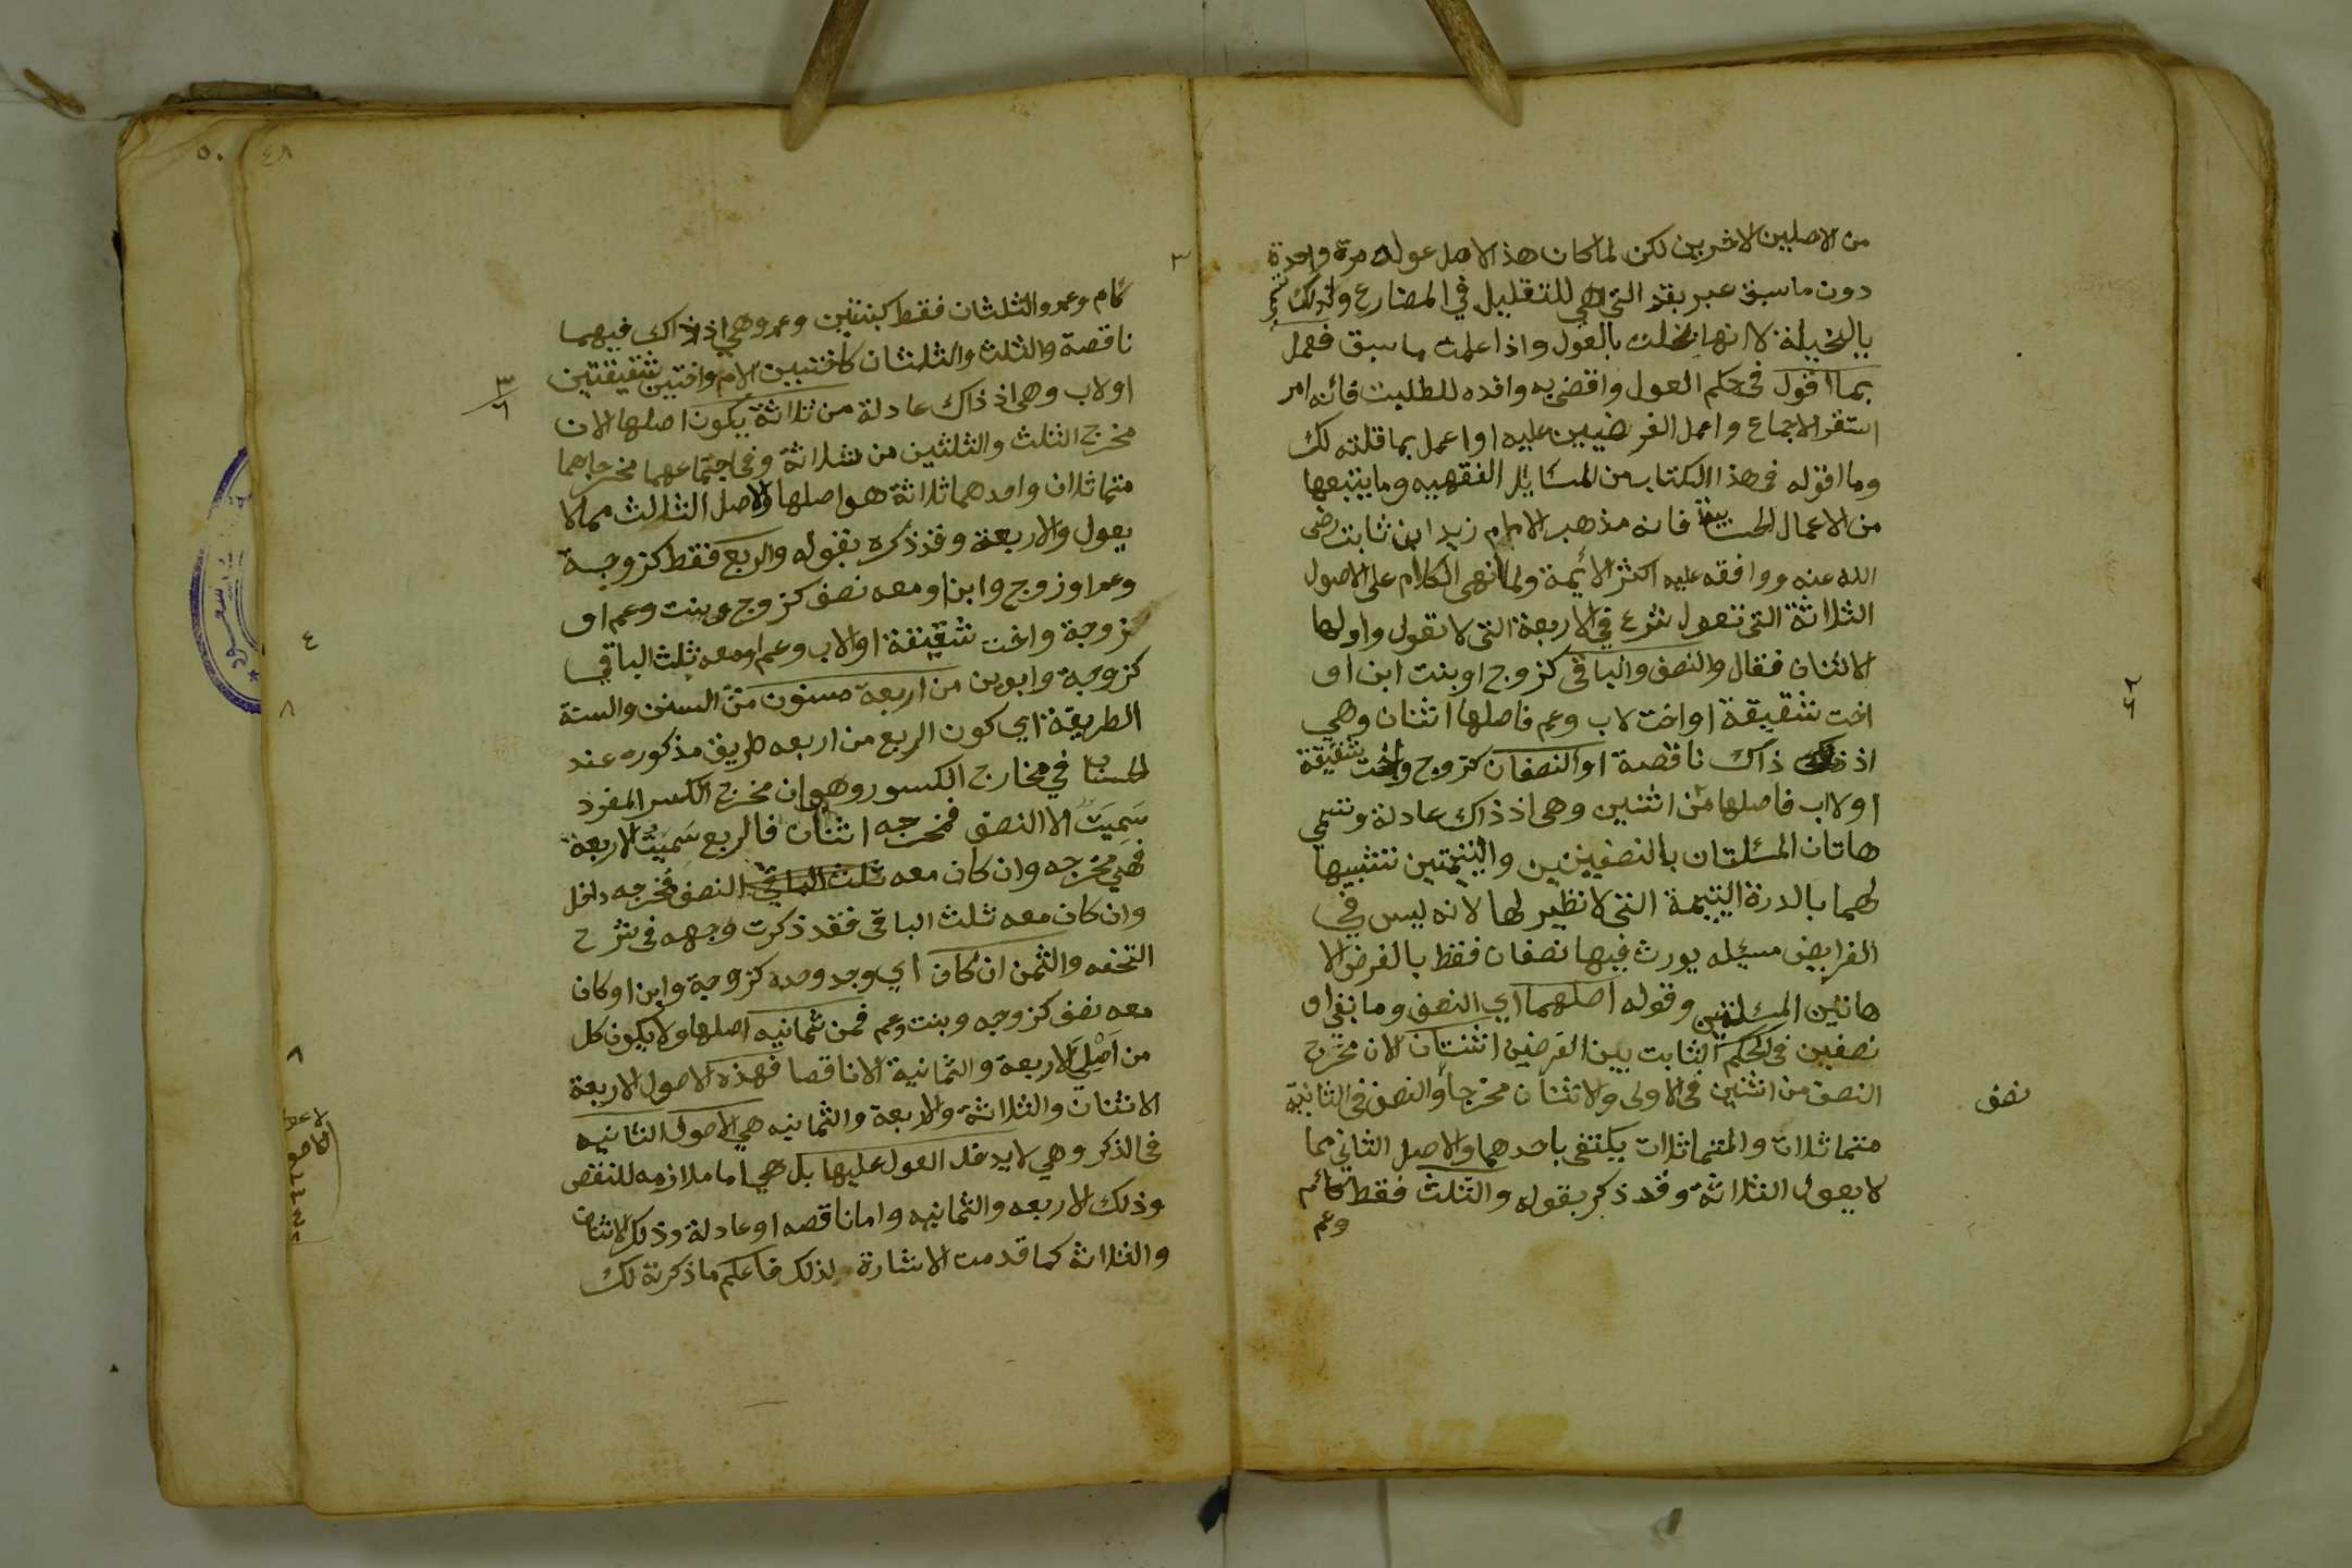 من الاصلين الاخرين لكن لما كان هذا الاصل عوله مرة واحدة
دون ما سبق عبر بقد التي هي للتقليل في المضارع ولذلك
بالبخيلة لانها بخلت بالعول واذا علمت ما سبق فعمل
بما اقول في حكم العول واقض به وافده للطلبت فانه امر
استقر الاجماع واعمل الفرضيين عليه او اعمل بما قلته لك
وما اقوله في هذا الكتاب من المسايل الفقهيه وما يتبعها
من الاعمال الحسابية فانه مذهب الامام زيد ابن ثابت رضى
الله عنه ووافقه عليه اكثر الأيمة ولما انهى الكلام على الاصول
الثلاثة التى تعول شرع في الاربعة التى لا تعول واولها
الاثنان فقال والنصف والباقى كزوج او بنت ابن او
اخت شقيقة او اخت لاب وعم فاصلها اثنان وهي
اذ ذاك ناقصة او النصفان كزوج واخت شقيقة
او لاب فاصلها من اثنين وهى اذ ذاك عادلة وتسمي
هاتان المسئلتان بالنصفيتين واليتيمتين تشبيها
لهما بالدرة اليتيمة التى لا نظير لها لانه ليس في
الفرايض مسيله يورث فيها نصفان فقط بالفرض الا
هاتين المسئلتين وقوله اصلهما اي النصف وما بقي او
نصفين في الحكم الثابت بين الفرضين اثنتان لان مخرج
النصف من اثنين في الاولى والاثنان مخرجا والنصف في الثانية
متماثلان والمتماثلات يكتفى باحدهما والاصل الثاني مما
لا يعول الثلاثة وقد ذكر بقوله والثلث فقط كائم
وعم
نصف
كام وعم والثلثان فقط كبنتين وعم وهي اذ ذاك فيهما
ناقصة والثلث والثلثان كاختين لام واختين شقيقتين
او لاب وهى اذ ذاك عادلة من ثلاثة يكون اصلها لان
مخرج الثلث والثلثين من ثلاثة وفي اجتماعهما مخرجاهما
متماثلان واحدهما ثلاثة هو اصلها والاصل الثالث مما لا
يعول والاربعة وقد ذكره بقوله والربع فقط كزوجة
وعم او زوج وابن او معه نصف كزوج وبنت وعم او
كزوجة واخت شقيقة او لاب وعم او معه ثلث الباقي
كزوجة وابوين من اربعة مسنون من السنن والسنة
الطريقة اي كون الربع من اربعه طريق مذكوره عند
الحساب في مخارج الكسور وهو ان مخرج الكسر المفرد
سَمِيّه الا النصف فمخرجه اثنان فالربع سمية الاربعة
فهي مخرجه وان كان معه ثلث الباقي النصف فمخرجه داخل
وان كان معه ثلث الباقى فقد ذكرت وجهه فى شرح
التحفه والثمن ان كان اي وجد وحده كزوجة وابن او كان
معه نصف كزوجه وبنت وعم فمن ثمانيه اصلها ولا يكون كل
من اصلي الاربعة والثمانية الا ناقصا فهذه الاصول الاربعة
الاثنان والثلاثة والاربعة والثمانيه هي الاصول الثانيه
في الذكر وهي لا يدخل العول عليها بل هي اما ملازمه للنقص
وذلك الاربعه والثمانيه واما ناقصه او عادلة وذلك الاثنان
والثلاثة كما قدمت الاشارة لذلك فاعلم ما ذكرته لك
٣
٦
٤
٨
٨
٤٨
٥٠